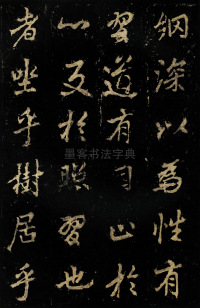 深以為性有
習道有止於
心反於照習也
者坐乎樹居乎
墨客书法字典